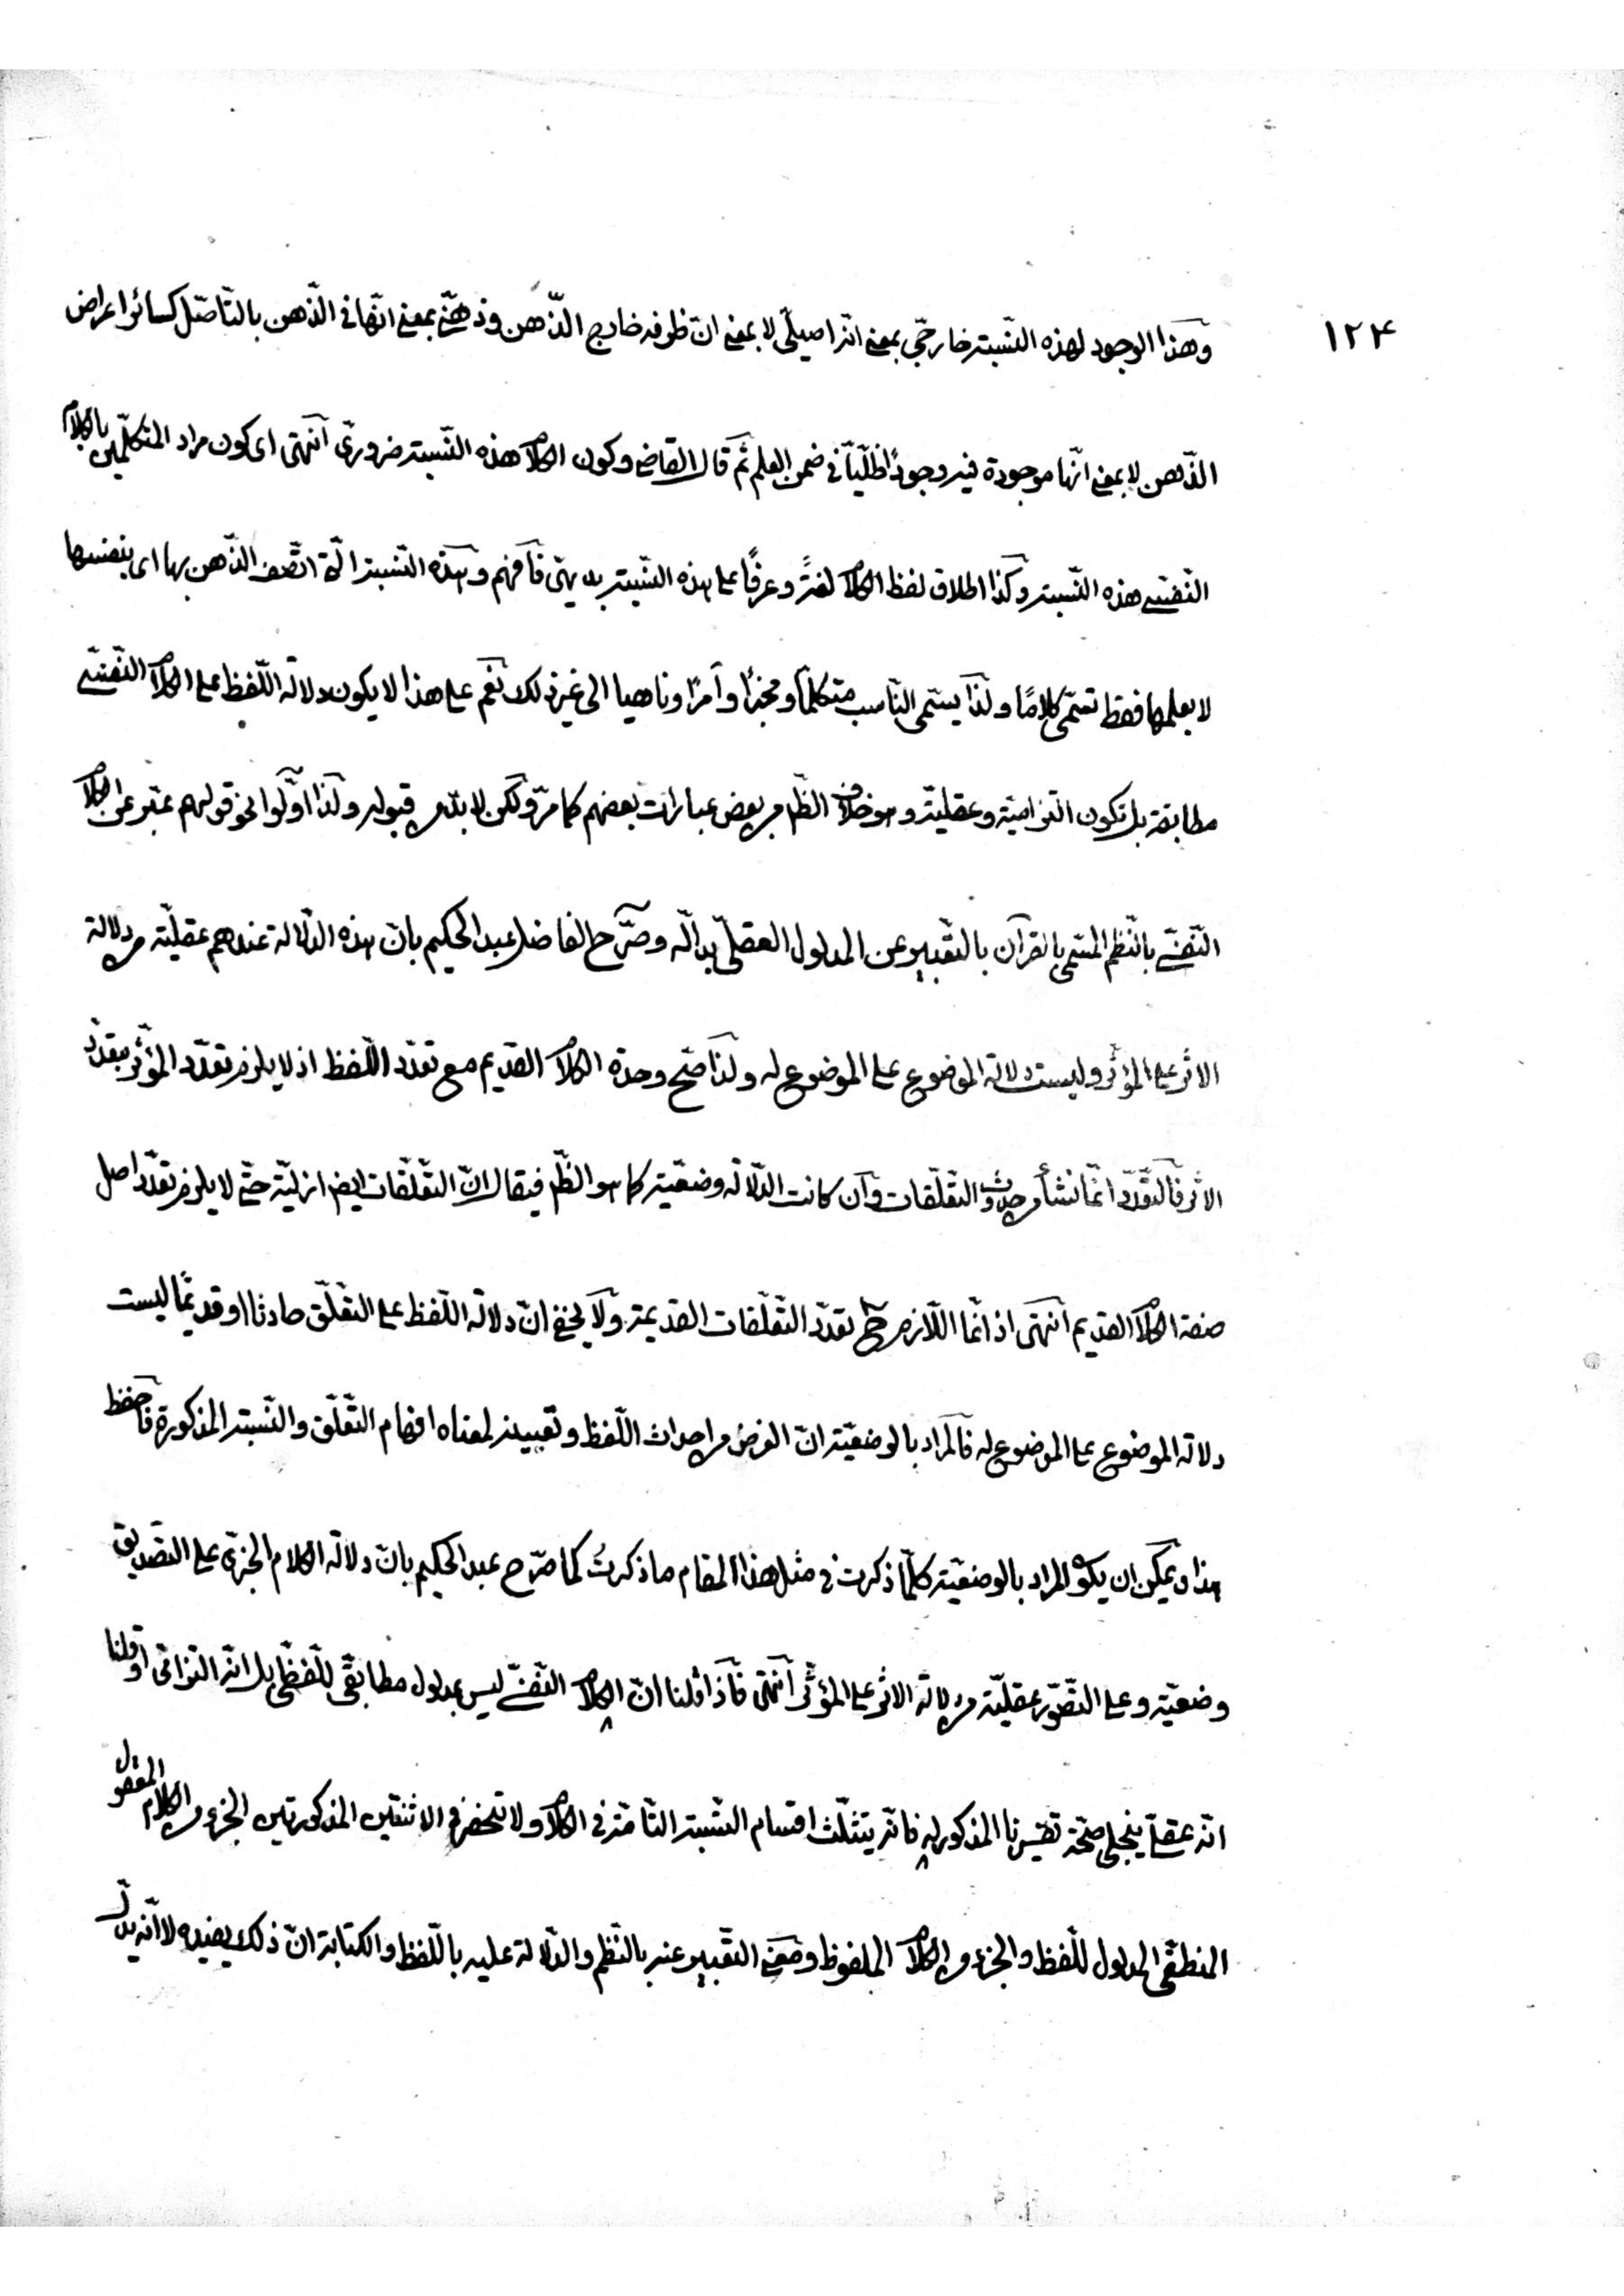 ١٢۴
وهذا الوجود لهذه النّسبة خارجيّ بمعنى انّه اصيليّ لا بمعنى انّ ظرفه خارج الذّهن وذهنيّ بمعنى انّها في الذّهن بالتّاصّل كسائر اعراض
الذّهن لا بمعنى انّها موجودة فيه وجودًا ظلّيّا في ضمن العلم ثمّ قال القاضي وكون الكلام هذه النّسبة ضروريّ انتهى اى كون مراد المتكلّمين بالكلام
النّفسي هذه النّسبة وكذا اطلاق لفظ الكلام لغةً وعرفًا على هذه النّسبة بديهيّ فافهم وهذه النّسبة الّتي اتّصف الذّهن بها اى بنفسها
لا بعلمها فقط تسمّى كلامًا ولذا يسمّى النّاسب متكلّمًا ومخبرًا وآمرًا وناهيا الى غير ذلك نعم على هذا لا يكون دلالة اللّفظ على الكلام النّفسي
مطابقة بل تكون التزاميّة وعقليّة وهو خلاف الظّ من بعض عبارات بعضهم كما مرّ ولكن لا بدّ من قبوله ولذا اوّلوا نحو قولهم عبّر عن الكلام
النّفسي بالنّظم المسمّى بالقرآن بالتّعبير عن المدلول العقليّ بدالّه وصرّح الفاضل عبد الحكيم بانّ هذه الدّلالة عندهم عقليّة من دلالة
الاثر على المؤثّر وليست دلالة الموضوع على الموضوع له ولذا صحّ وحدة الكلام القديم مع تعدّد اللّفظ اذ لا يلزم تعدّد المؤثّر بتعدّد
الاثر فالتّعدّد انّما نشأ من حدوث التعلّقات وان كانت الدّلالة وضعيّة كما هو الظّ فيقال انّ التعلّقات ايض ازليّة حتّى لا يلزم تعدّد اصل
صفة الكلام القديم انتهى اذ انّما اللّازم ح تعدّد التّعلّقات القديمة ولا يخفى انّ دلالة اللّفظ على التعلّق حادثا او قديمًا ليست
دلالة الموضوع على الموضوع له فالمراد بالوضعيّة انّ الغرض من احداث اللّفظ وتعيينه لمعناه افهام التعلّق والنّسبة المذكورة فاحفظ
هذا ويمكن ان يكون المراد بالوضعيّة كلّما ذكرت في مثل هذا المقام ما ذكرتُ كما صرّح عبد الحكيم بانّ دلالة الكلام الخبرى على التصديق
وضعيّة وعلى التصوّر عقليّة من دلالة الاثر على المؤثّر انتهى فاذا قلنا انّ الكلام النّفسيّ ليس بمدلول مطابقيّ للّفظيّ بل انّه التزامّى او قلنا
انّه عقليّ ينجلى صحّة تفسيرنا المذكور له فانّه يتثلّث اقسام النّسبة التّامّة في الكلام ولا تنحصر في الاثنتين المذكورتين الجزء من الكلام المعقول
المنطقيّ المدلول للّفظ والجزء من الكلام الملفوظ ومعنى التعبير عنه بالنّظم والدّلالة عليه باللّفظ والكتابة انّ ذلك يفيده لا انّه يدلّ